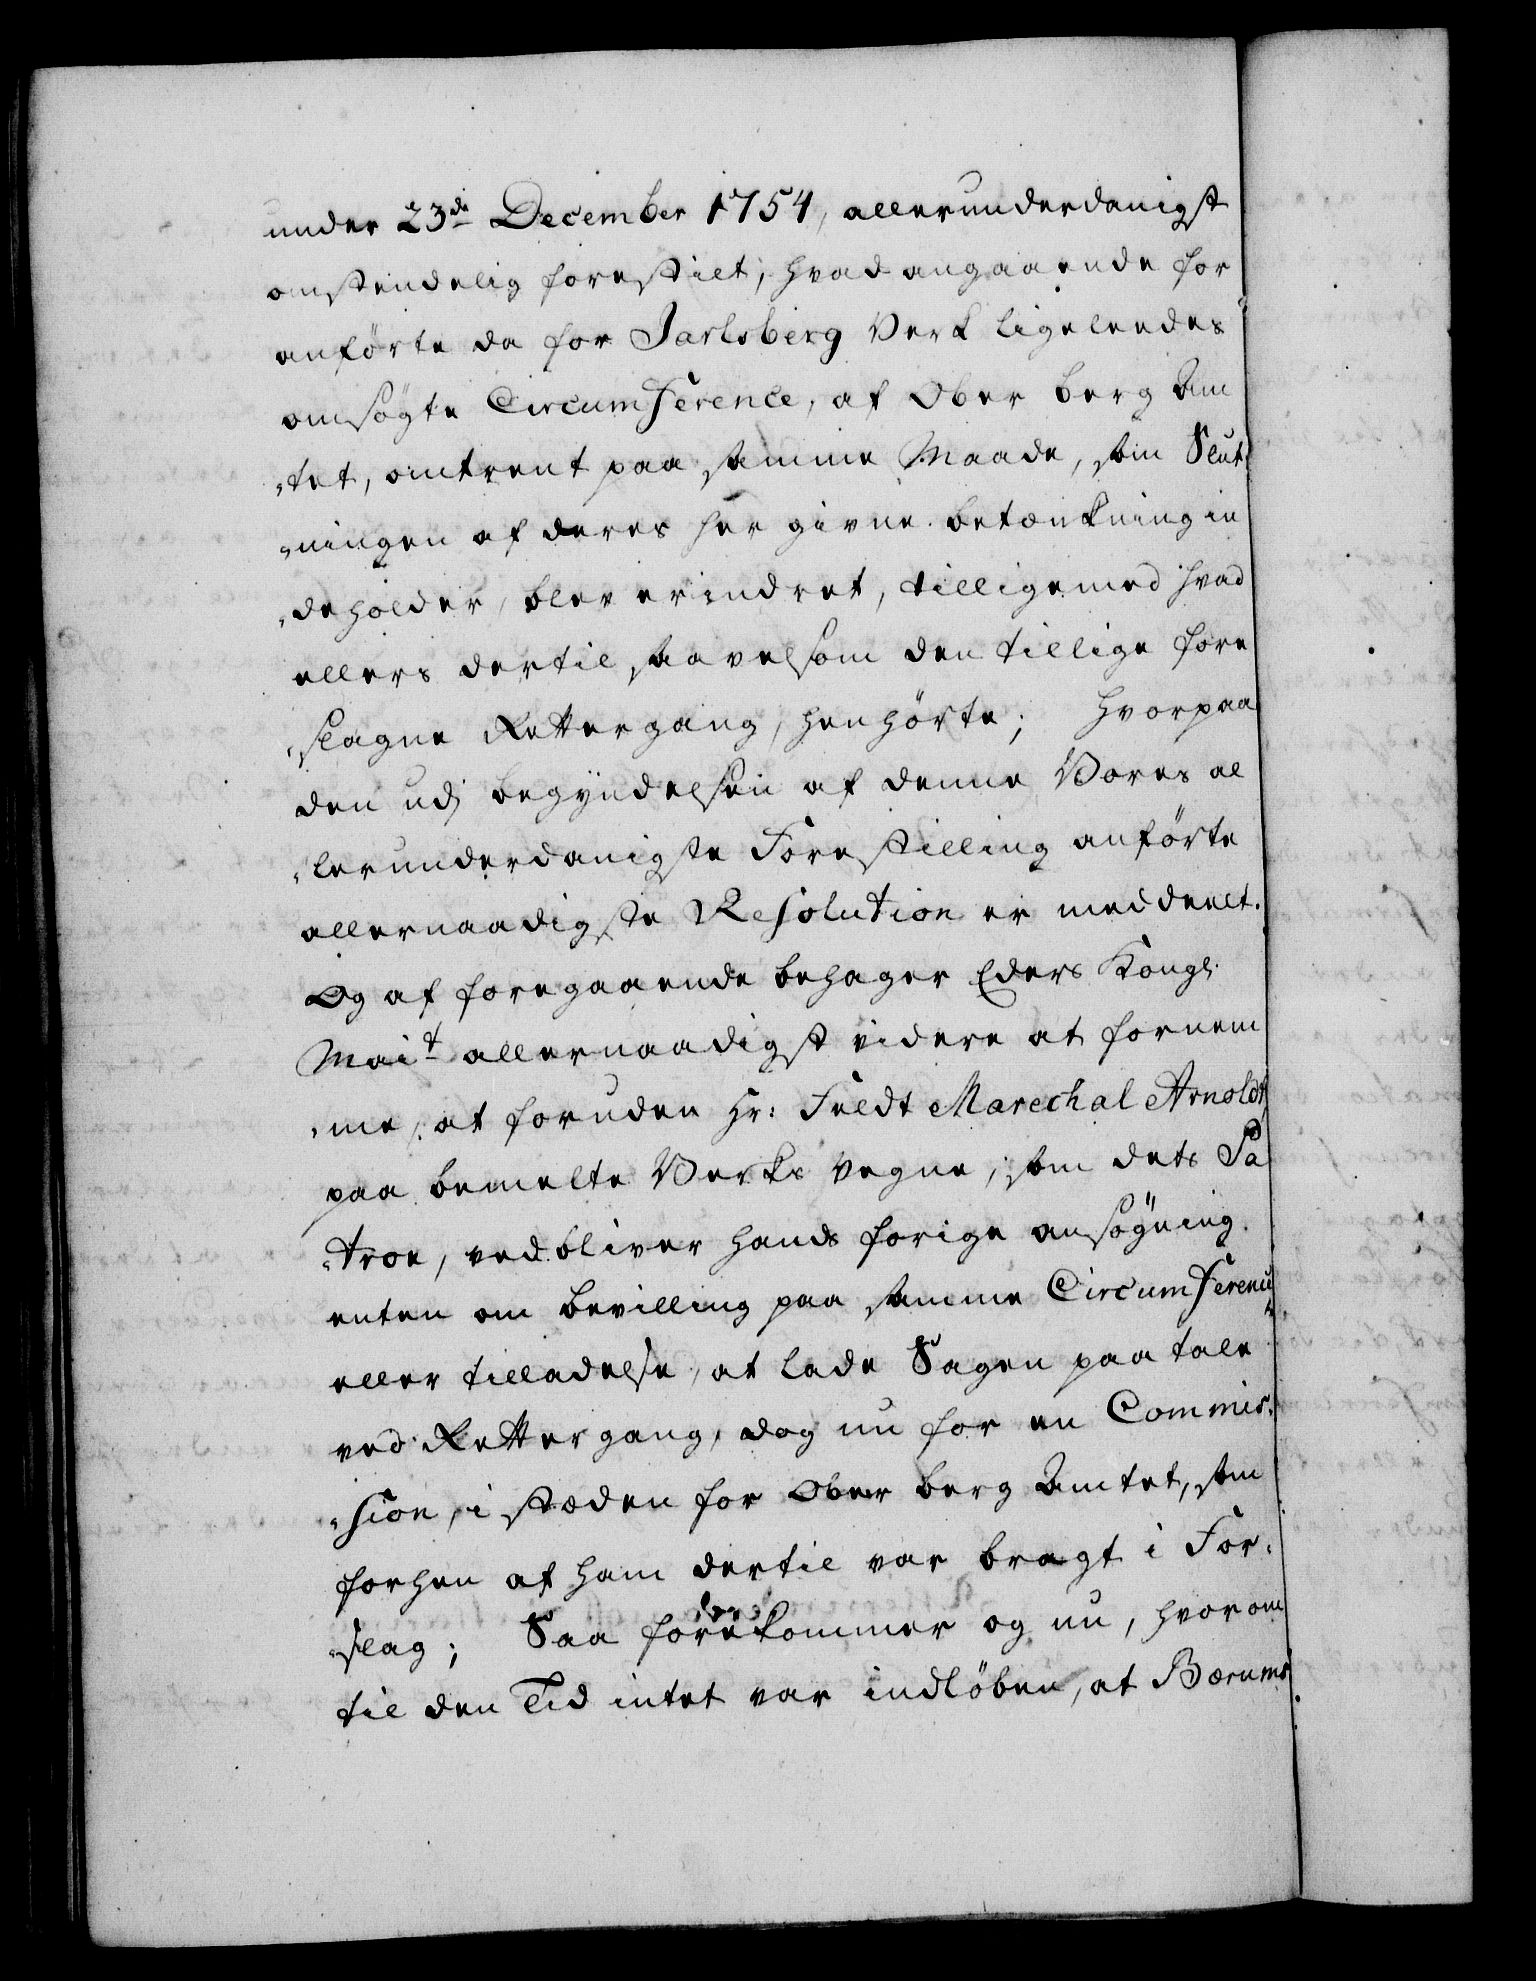 under 23de December 1754, allerunderdanigst
omstendelig forestilet, hvad angaaende for
anförte da for Jarlsberg Verk ligeleedes
omsögte Circumference, af Ober berg Am
„tet, omtrent paa samme Maade, som Slut„
„ningen af deres her givne betænkning in
„deholder, blev erindret, tilligemed hvad
ellers dertil saavelsom den tillige fore
„slagne Rettergang, henhörte; hvorpaa
den udj begyndelsen af denne Vores al
„lerunderdanigste Forestilling anförte
allernaadigste Resolution er meddeelt.
Og af foregaaende behager Eders Kongl:
Mait allernaadigst videre at fornem
„me, at foruden Hr: Feldt Marechal Arnoldt
paa bemelte Verks Vegne, som dets Pa
„tron, vedbliver hands forige ansögning
enten om bevilling paa samme Circumference
eller tilladelse, at lade Sagen paatale
ved Rettergang, dog nu for en Commis„
„sion, i stæden for Ober berg Amtet, som
forhen af ham dertil var bragt i For„
„slag; Saa forekommer og nu, hvorom
til den Tid intet var indlöben, at Bærums